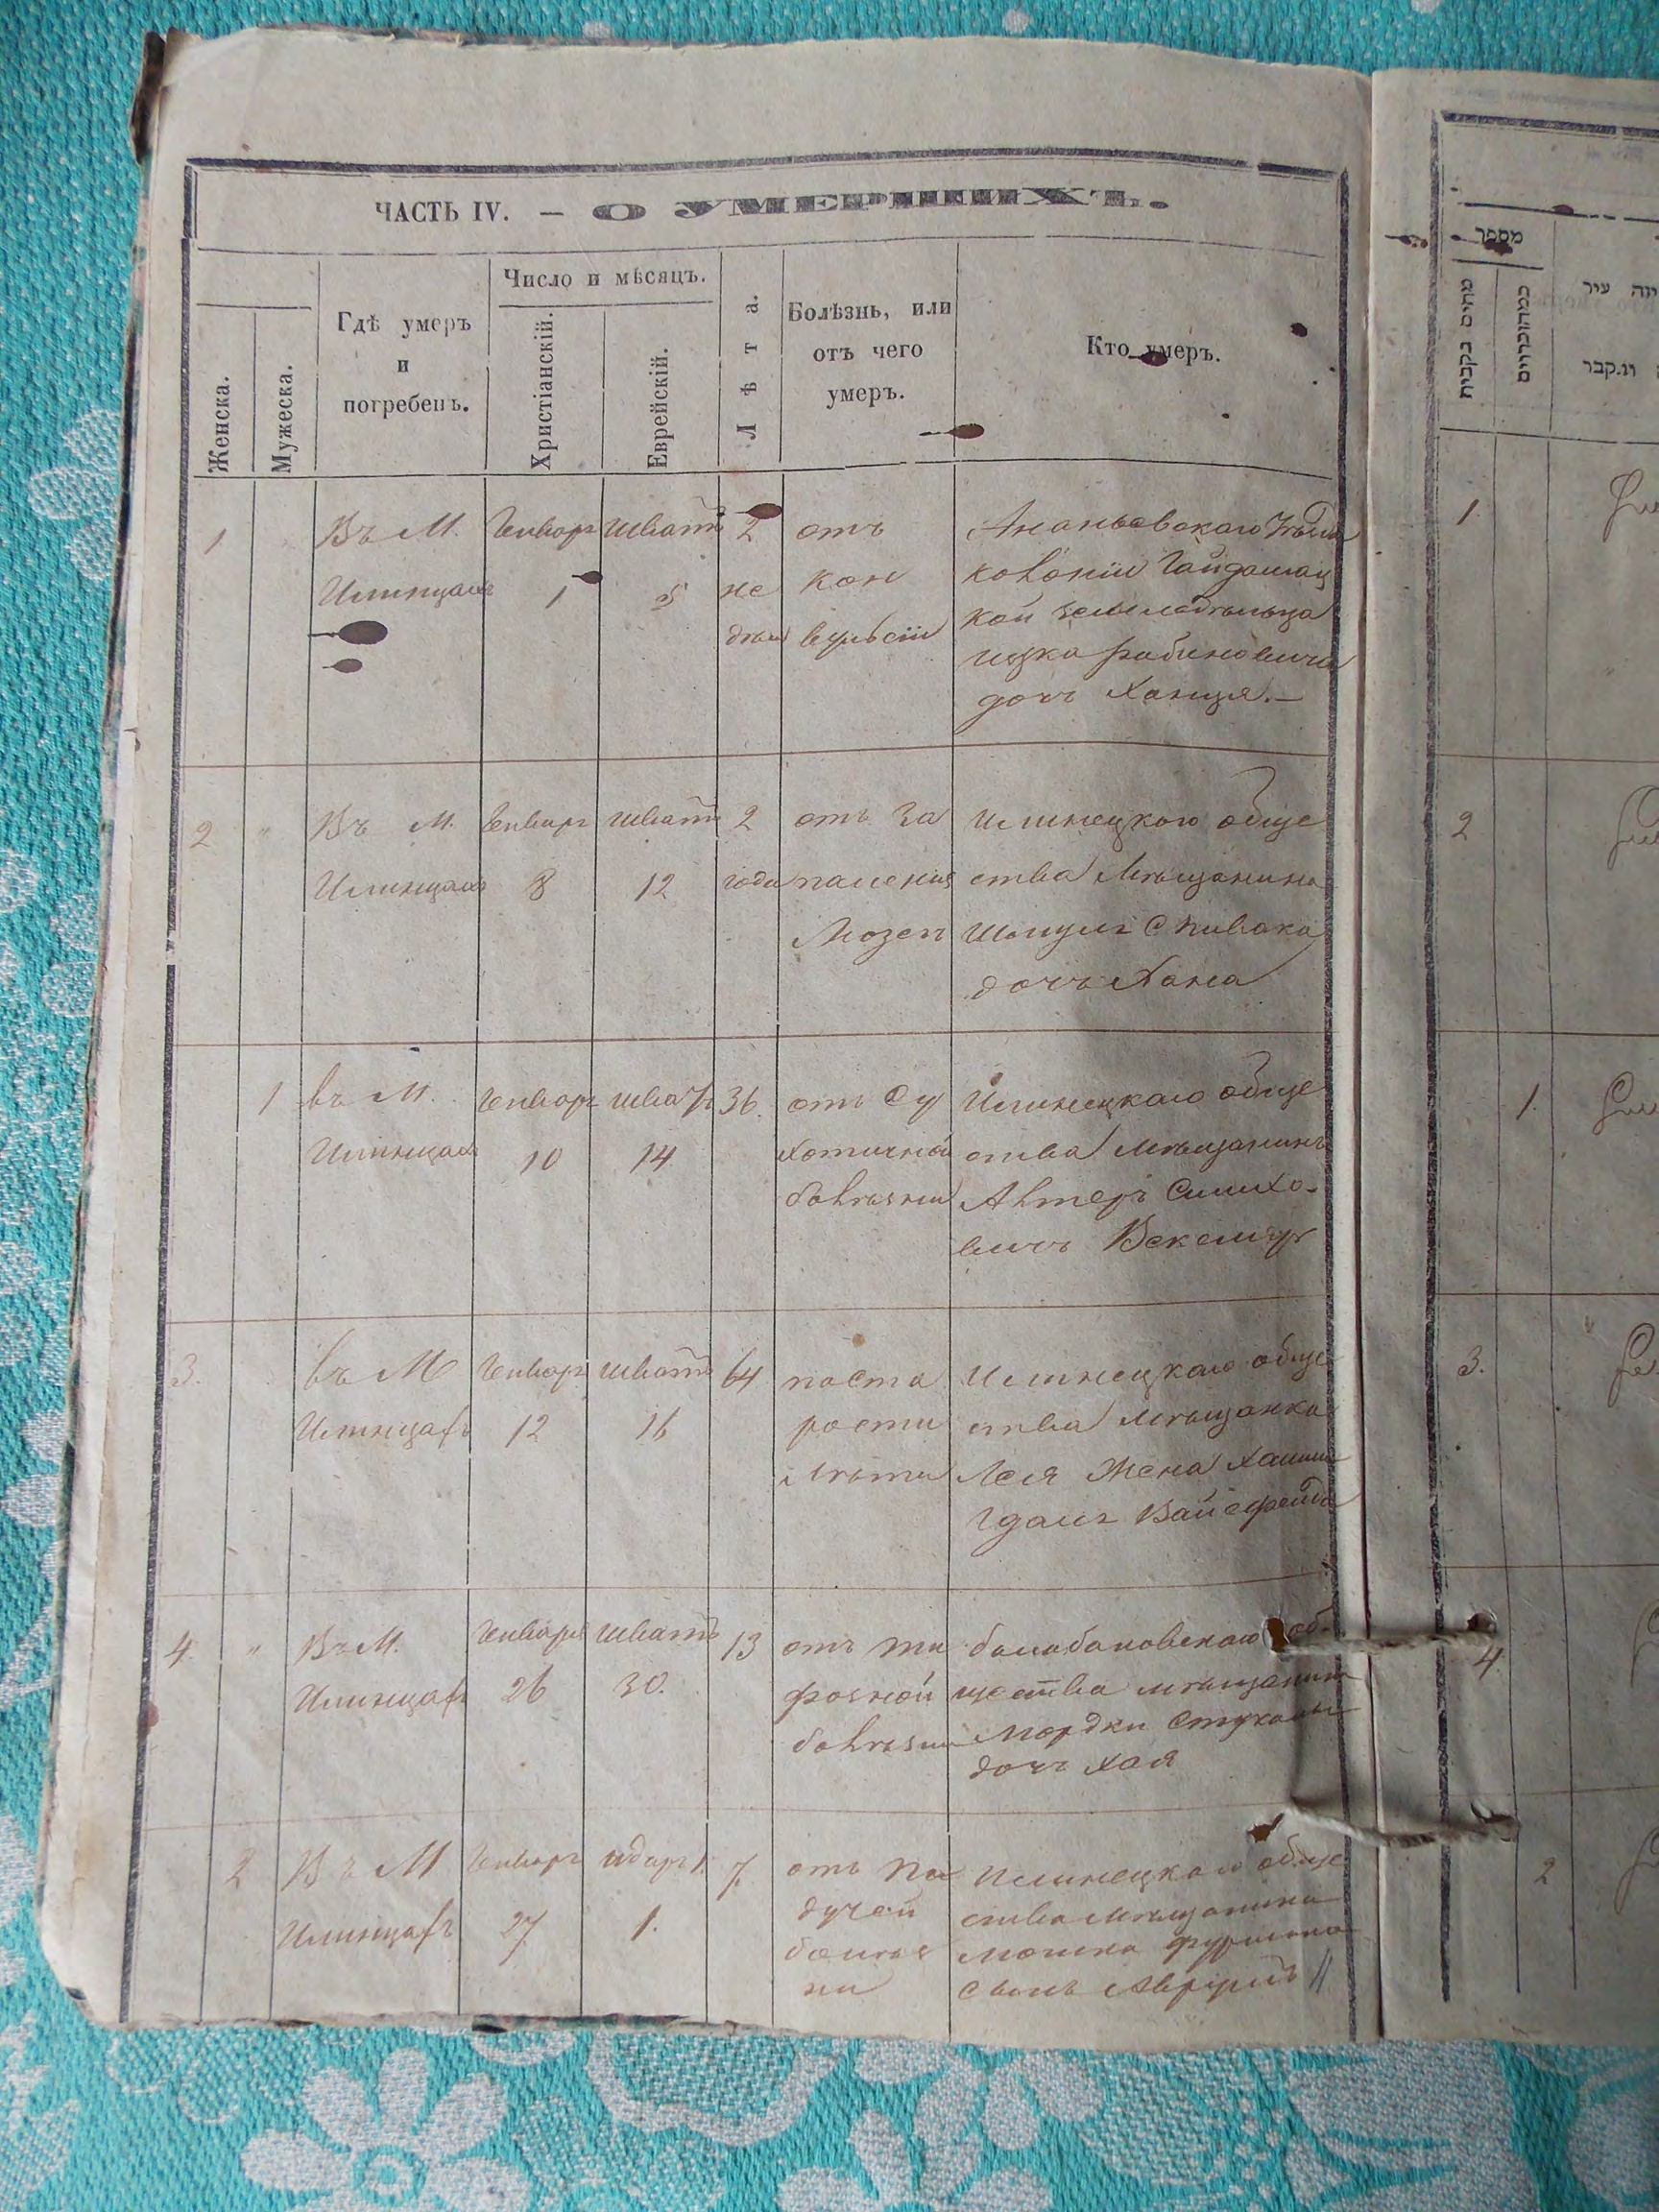 ЧАСТЬ IV. — О УМЕРШИХЪ.
Женска.
Мужеска.
Гдѣ умеръ
и
погребенъ.
Число и мѣсяцъ.
Христіанскій.
Еврейскій.
Лѣта.
Болѣзнь, или
отъ чего
умеръ.
Кто умеръ.
1
Въ М.
Илинцахъ
Генваря
1
Шватъ
5
2
не
дѣли
отъ
кон
вульсіи
Ананьевскаго Уѣзда
колоніи Гайдамац
кой земледѣльца
Ицка Рабиновича
дочь Ханця.—
2
"
Въ М.
Илинцахъ
Генваря
8
Шватъ
12
2
года
отъ за
паленія
Мозга
Илинецкого обще
ства Мѣщанина
Шмуля Спивака
дочь Хана
1
въ М.
Илинцахъ
Генваря
10
Шватъ
14
36.
отъ су
хотичной
болѣзни
Илинецкаго обще
ства мѣщанинъ
Алтеръ Симхо-
вичъ Векслеръ
3.
въ М
Илинцахъ
Генваря
12
Шватъ
16
64
по ста
рости
лѣтъ
Илинецкаго обще
ства Мѣщанка
Лея Жена Хаима
4.
"
Въ М.
Илинцахъ
Генваря
26
Шватъ
30.
13
отъ ти
фозной
болѣзни
балабановскаго об-
щества мѣщанина
Мордки
дочь Хая
2
Въ М
Илинцахъ
Генваря
27
Адаръ 1.
1.
7.
отъ па
дучей
болѣз
ни
Илинецкаго обще
ства мѣщанина
Мошка Фурмана
сынъ
מספר
1.
2
1.
3.
4
2